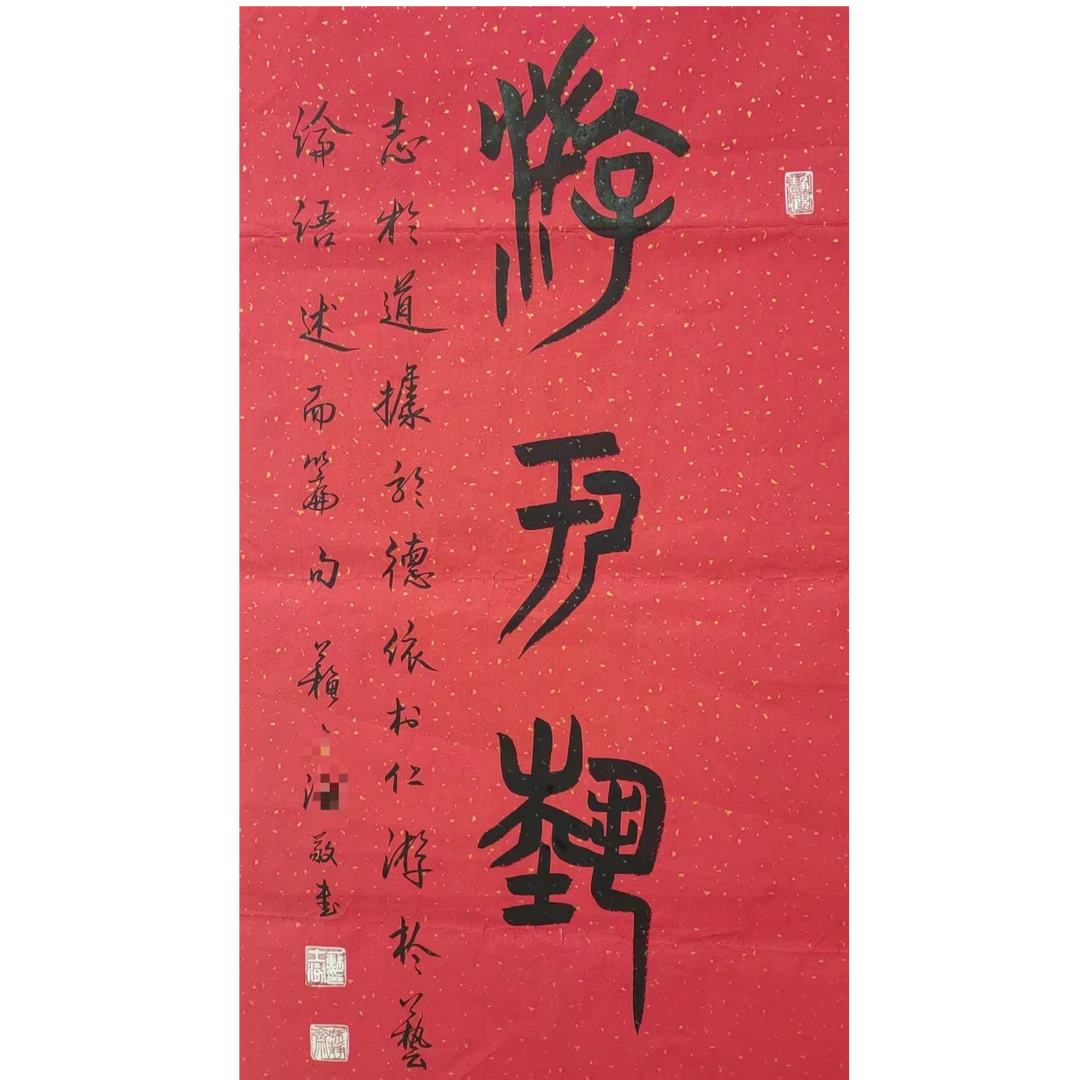 游于藝
志於道據於德依於仁游於藝
论语述而篇句
敬書